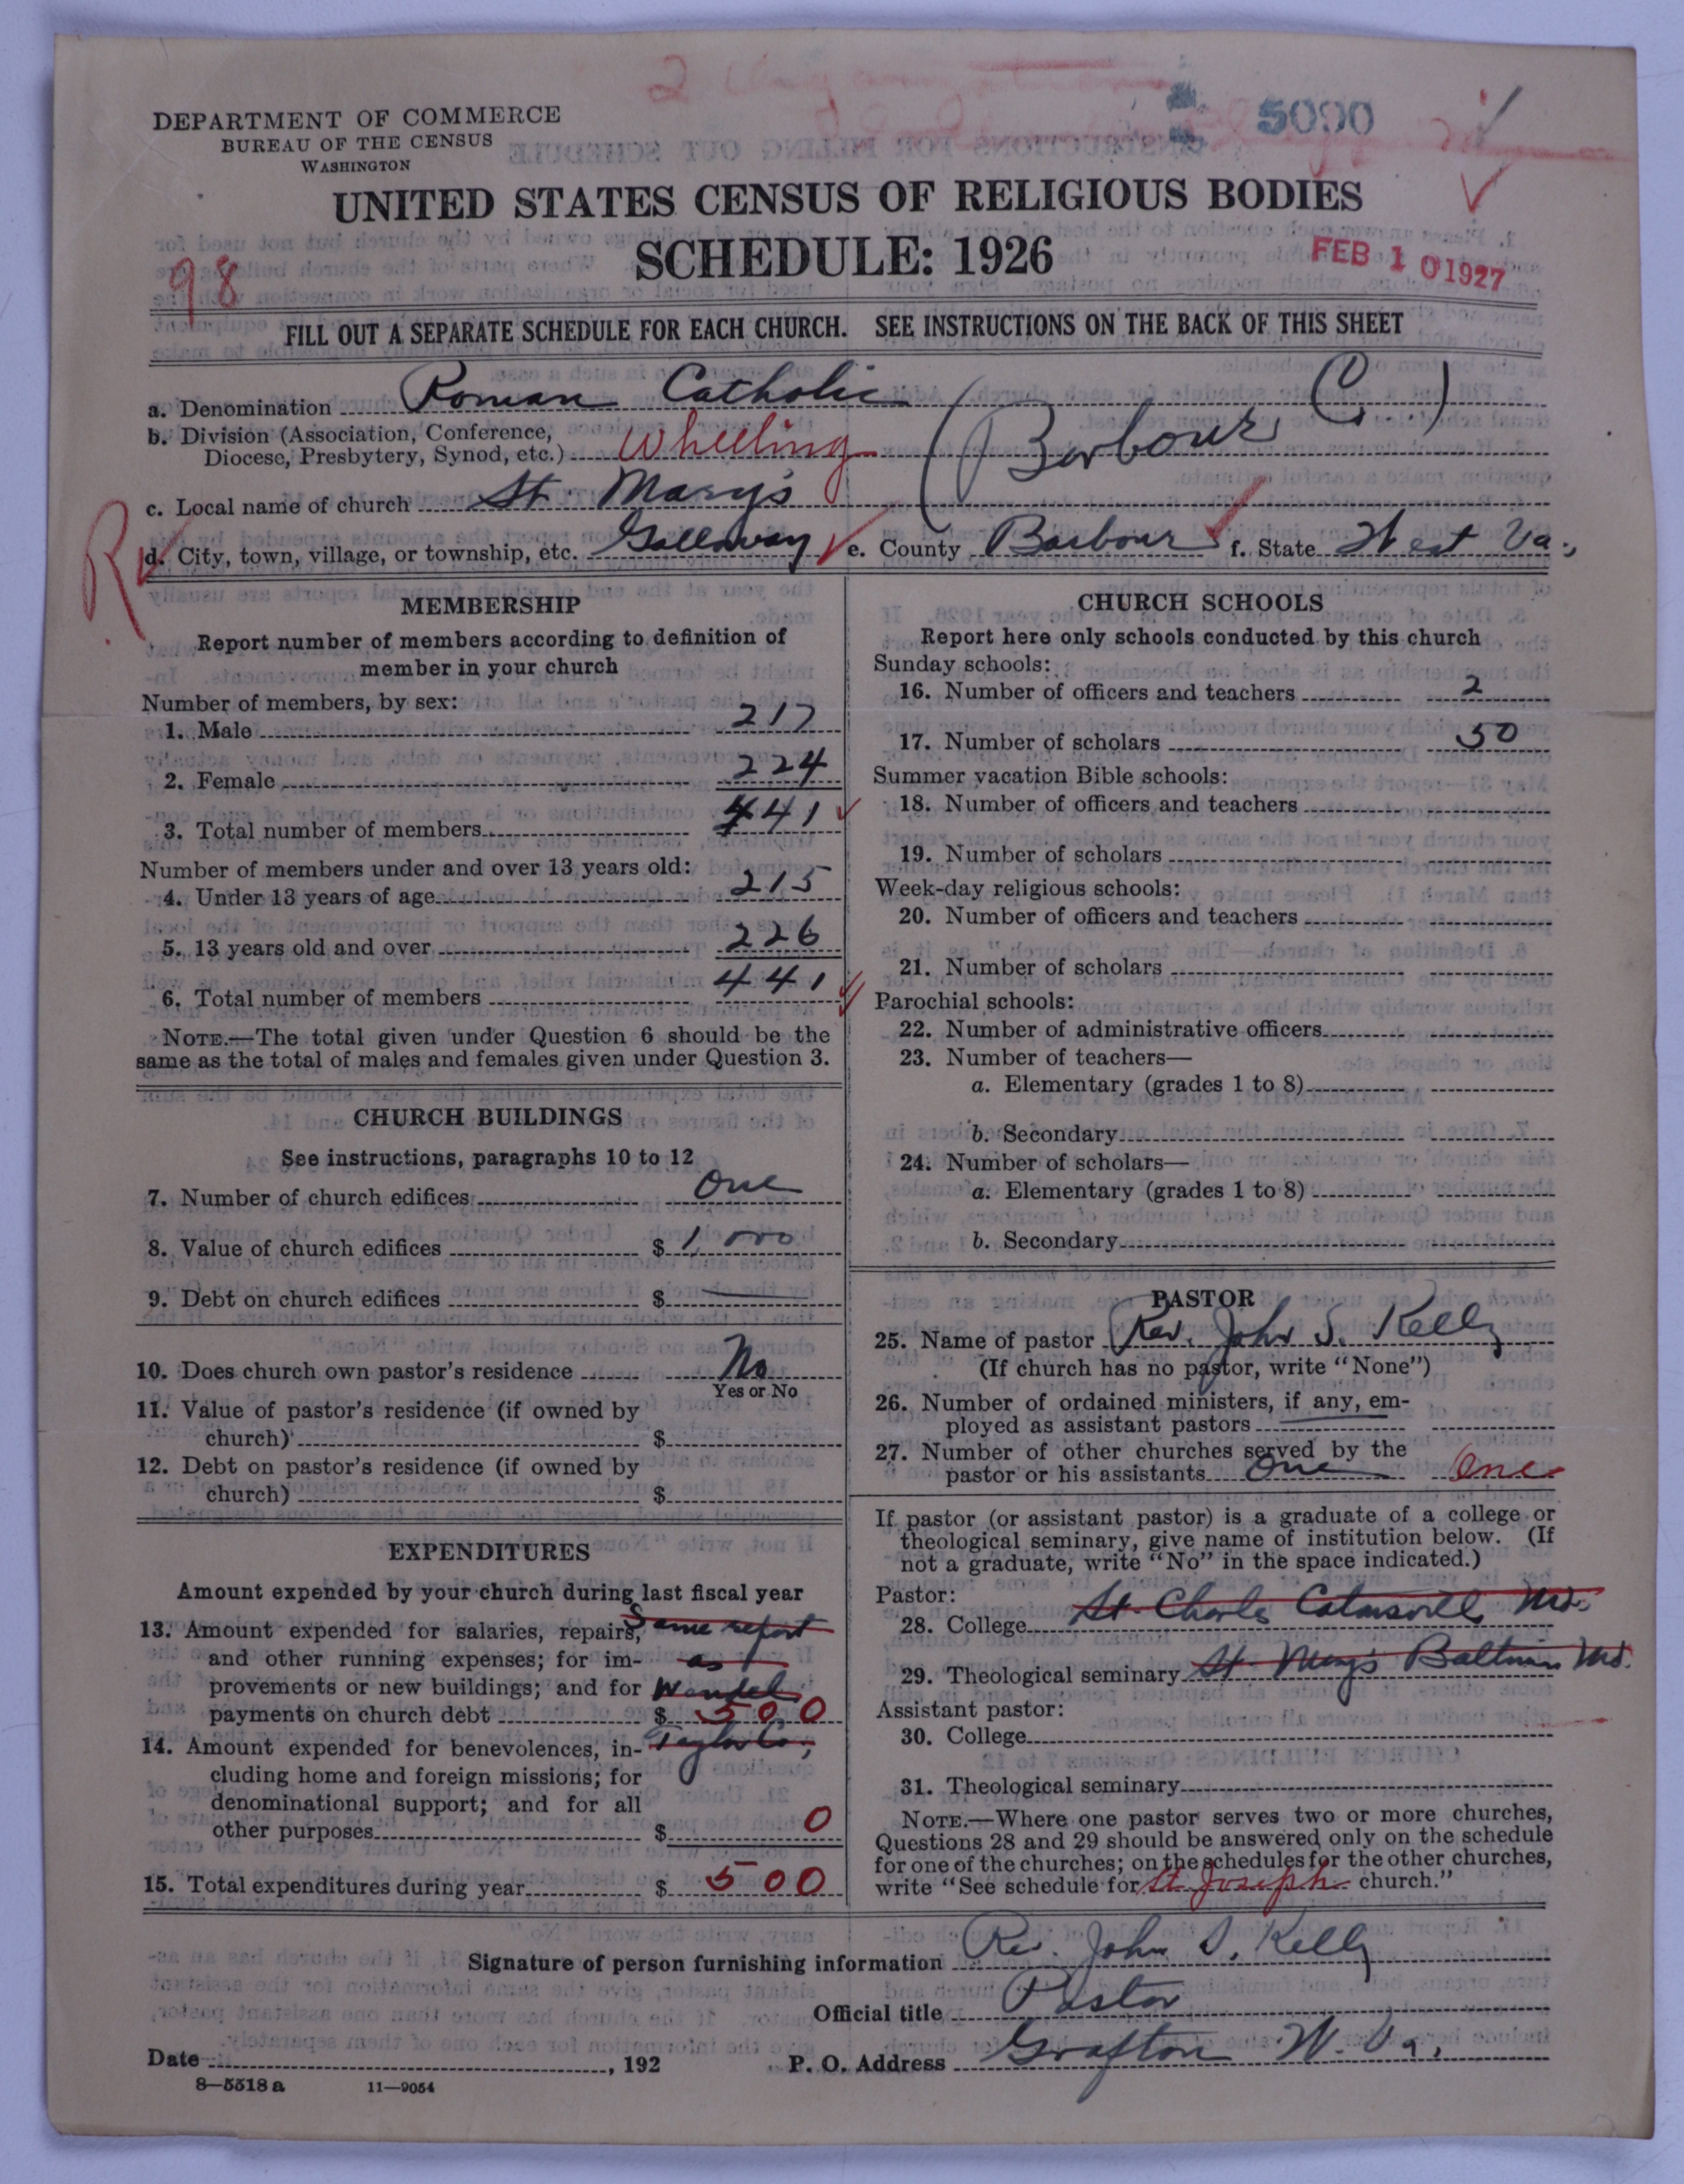 DEPARTMENT OF COMMERCE
BUREAU OF THE CENSUS
WASHINGTON
5090
UNITED STATES CENSUS OF RELIGIOUS BODIES
SCHEDULE: 1926
98
FEB 10 1927
FILL OUT A SEPARATE SCHEDULE FOR EACH CHURCH. SEE INSTRUCTIONS ON THE BACK OF THIS SHEET
a. Denomination Roman Catholic
b. Division (Association, Conference,
Diocese, Presbytery, Synod, etc.) Wheeling (Barbour Co.)
c. Local name of church St. Mary's
d. City, town, village, or township, etc. Galloway e. County Barbour f. State West Va.,
MEMBERSHIP
Report number of members according to definition of
member in your church
Number of members, by sex:
1. Male 217
2. Female 224
3. Total number of members 441
Number of members under and over 13 years old:
4. Under 13 years of age 215
5. 13 years old and over 226
6. Total number of members 441
NOTE.—The total given under Question 6 should be the
same as the total of males and females given under Question 3.
CHURCH BUILDINGS
See instructions, paragraphs 10 to 12
7. Number of church edifices One
8. Value of church edifices $ 1,000
9. Debt on church edifices $
10. Does church own pastor's residence No
Yes or No
11. Value of pastor's residence (if owned by
church) $
12. Debt on pastor's residence (if owned by
church) $
EXPENDITURES
Amount expended by your church during last fiscal year
13. Amount expended for salaries, repairs, Same report
and other running expenses; for im- as
provements or new buildings; and for Wendel
payments on church debt $ 500
14. Amount expended for benevolences, in- Taylor Co.,
cluding home and foreign missions; for
denominational support; and for all
other purposes $ 0
15. Total expenditures during year $ 500
CHURCH SCHOOLS
Report here only schools conducted by this church
Sunday schools:
16. Number of officers and teachers 2
17. Number of scholars 50
Summer vacation Bible schools:
18. Number of officers and teachers
19. Number of scholars
Week-day religious schools:
20. Number of officers and teachers
21. Number of scholars
Parochial schools:
22. Number of administrative officers
23. Number of teachers—
a. Elementary (grades 1 to 8)
b. Secondary
24. Number of scholars—
a. Elementary (grades 1 to 8)
b. Secondary
PASTOR
25. Name of pastor Rev. John S. Kelly
(If church has no pastor, write "None")
26. Number of ordained ministers, if any, em-
ployed as assistant pastors
27. Number of other churches served by the
pastor or his assistants One One
If pastor (or assistant pastor) is a graduate of a college or
theological seminary, give name of institution below. (If
not a graduate, write "No" in the space indicated.)
Pastor:
28. College St. Charles Catonsville Md.
29. Theological seminary St. Mary's Baltimore Md.
Assistant pastor:
30. College
31. Theological seminary
NOTE.—Where one pastor serves two or more churches,
Questions 28 and 29 should be answered only on the schedule
for one of the churches; on the schedules for the other churches,
write "See schedule for St Joseph church."
Signature of person furnishing information Rev. John S. Kelly
Official title Pastor
Date , 192 P. O. Address Grafton W. Va.
8—5518 a 11—9054